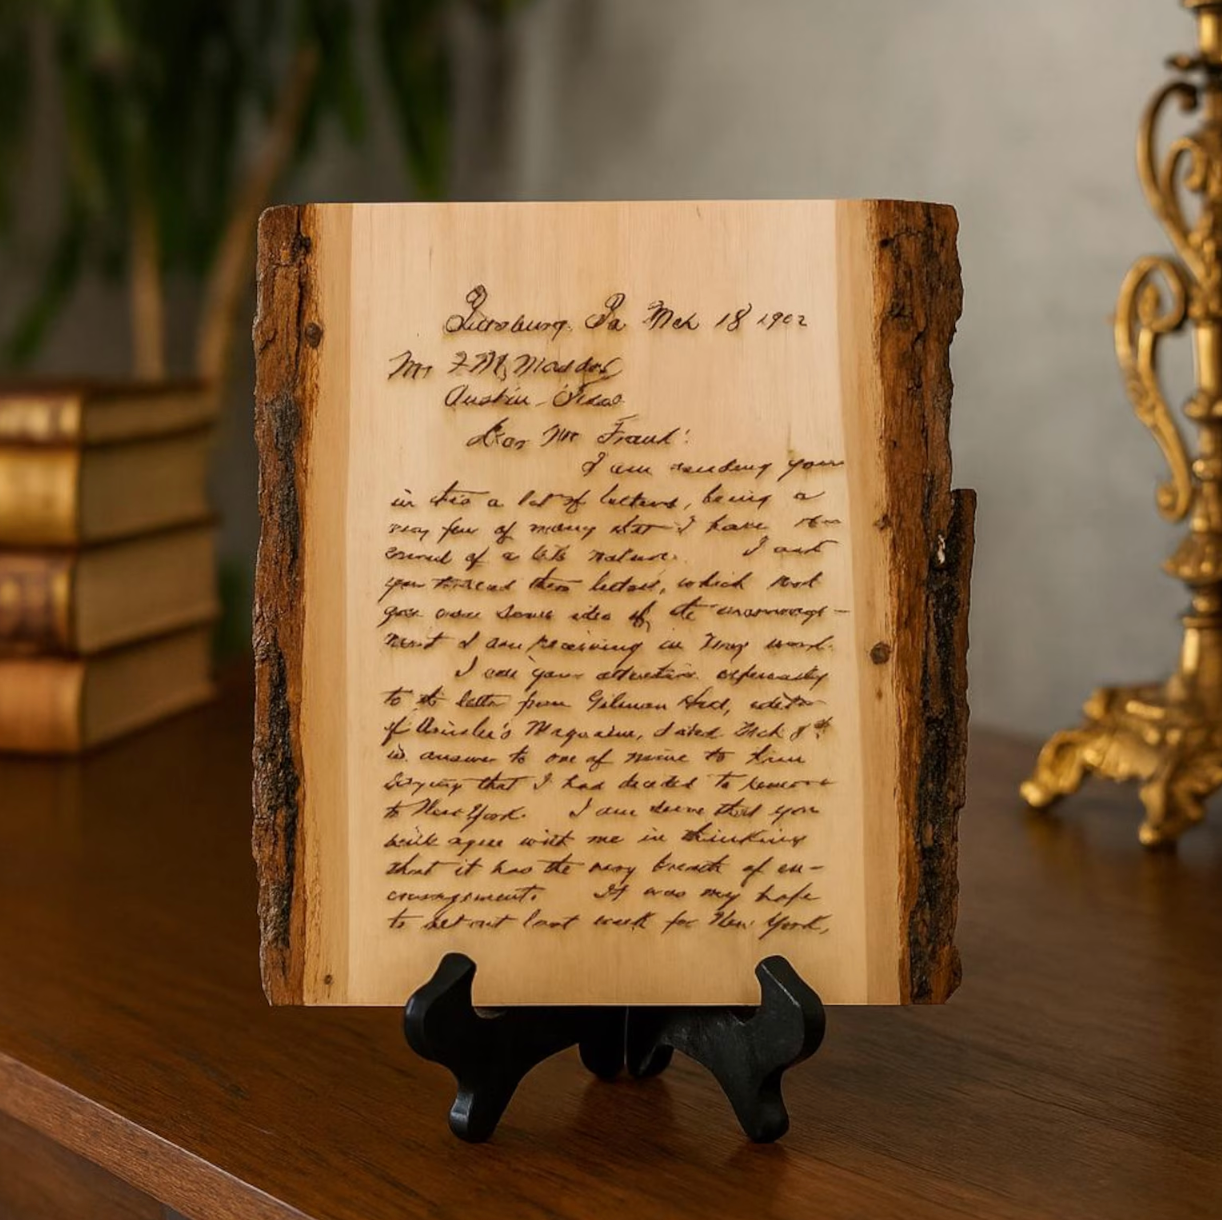 Pittsburg, Pa Mch 18 1902
Mr F. M. Maddox
Austin, Texas
Dear Mr Frank:
I am sending you
in this a lot of letters, being a
very few of many that I have re-
ceived of a like nature. I ask
you to read these letters, which
give you some idea of the encourage-
ment I am receiving in my work.
I call your attention especially
to the letter from Gilman Hall, editor
of Ainslee's Magazine, dated Mch
in answer to one of mine to him
saying that I had decided to remove
to New York. I am sure that you
will agree with me in thinking
that it has the very breath of en-
couragement. It was my hope
to set out last week for New York,